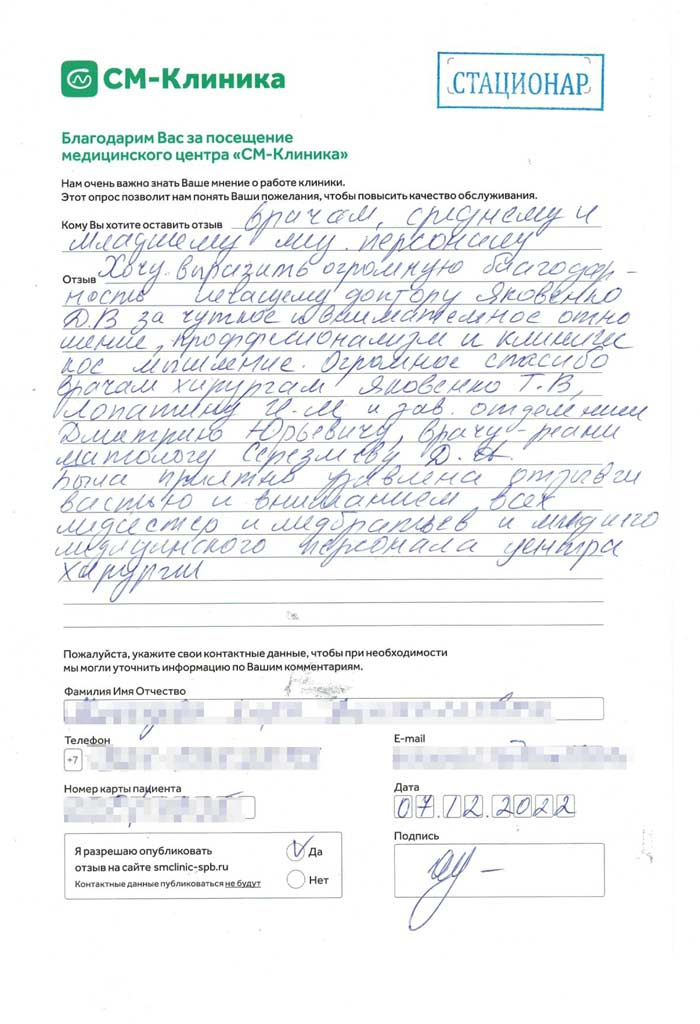 СМ-Клиника
СТАЦИОНАР
Благодарим Вас за посещение
медицинского центра «СМ-Клиника»
Нам очень важно знать Ваше мнение о работе клиники.
Этот опрос позволит нам понять Ваши пожелания, чтобы повысить качество обслуживания.
Кому Вы хотите оставить отзыв врачам, среднему и
младшему персоналу
Отзыв Хочу выразить огромную благодар-
ность лечащему доктору Яковенко
Д.В за чуткое и внимательное отно
шение, профессионализм и клиничес
кое мышление. Огромное спасибо
врачам хирургам Яковенко Т.В,
Лопатину И.М и зав. отделением
Дмитрию Юрьевичу, врачу-реани
матологу Д.А.
Была приятно удивлена отзывчи
востью и вниманием всех
медсестер и медбратьев и младшего
медицинского персонала центра
хирургии
Пожалуйста, укажите свои контактные данные, чтобы при необходимости
мы могли уточнить информацию по Вашим комментариям.
Фамилия Имя Отчество
Телефон
+7
E-mail
Номер карты пациента
Дата
07.12.2022
Я разрешаю опубликовать
отзыв на сайте smclinic-spb.ru
Контактные данные публиковаться не будут
Да
Нет
Подпись